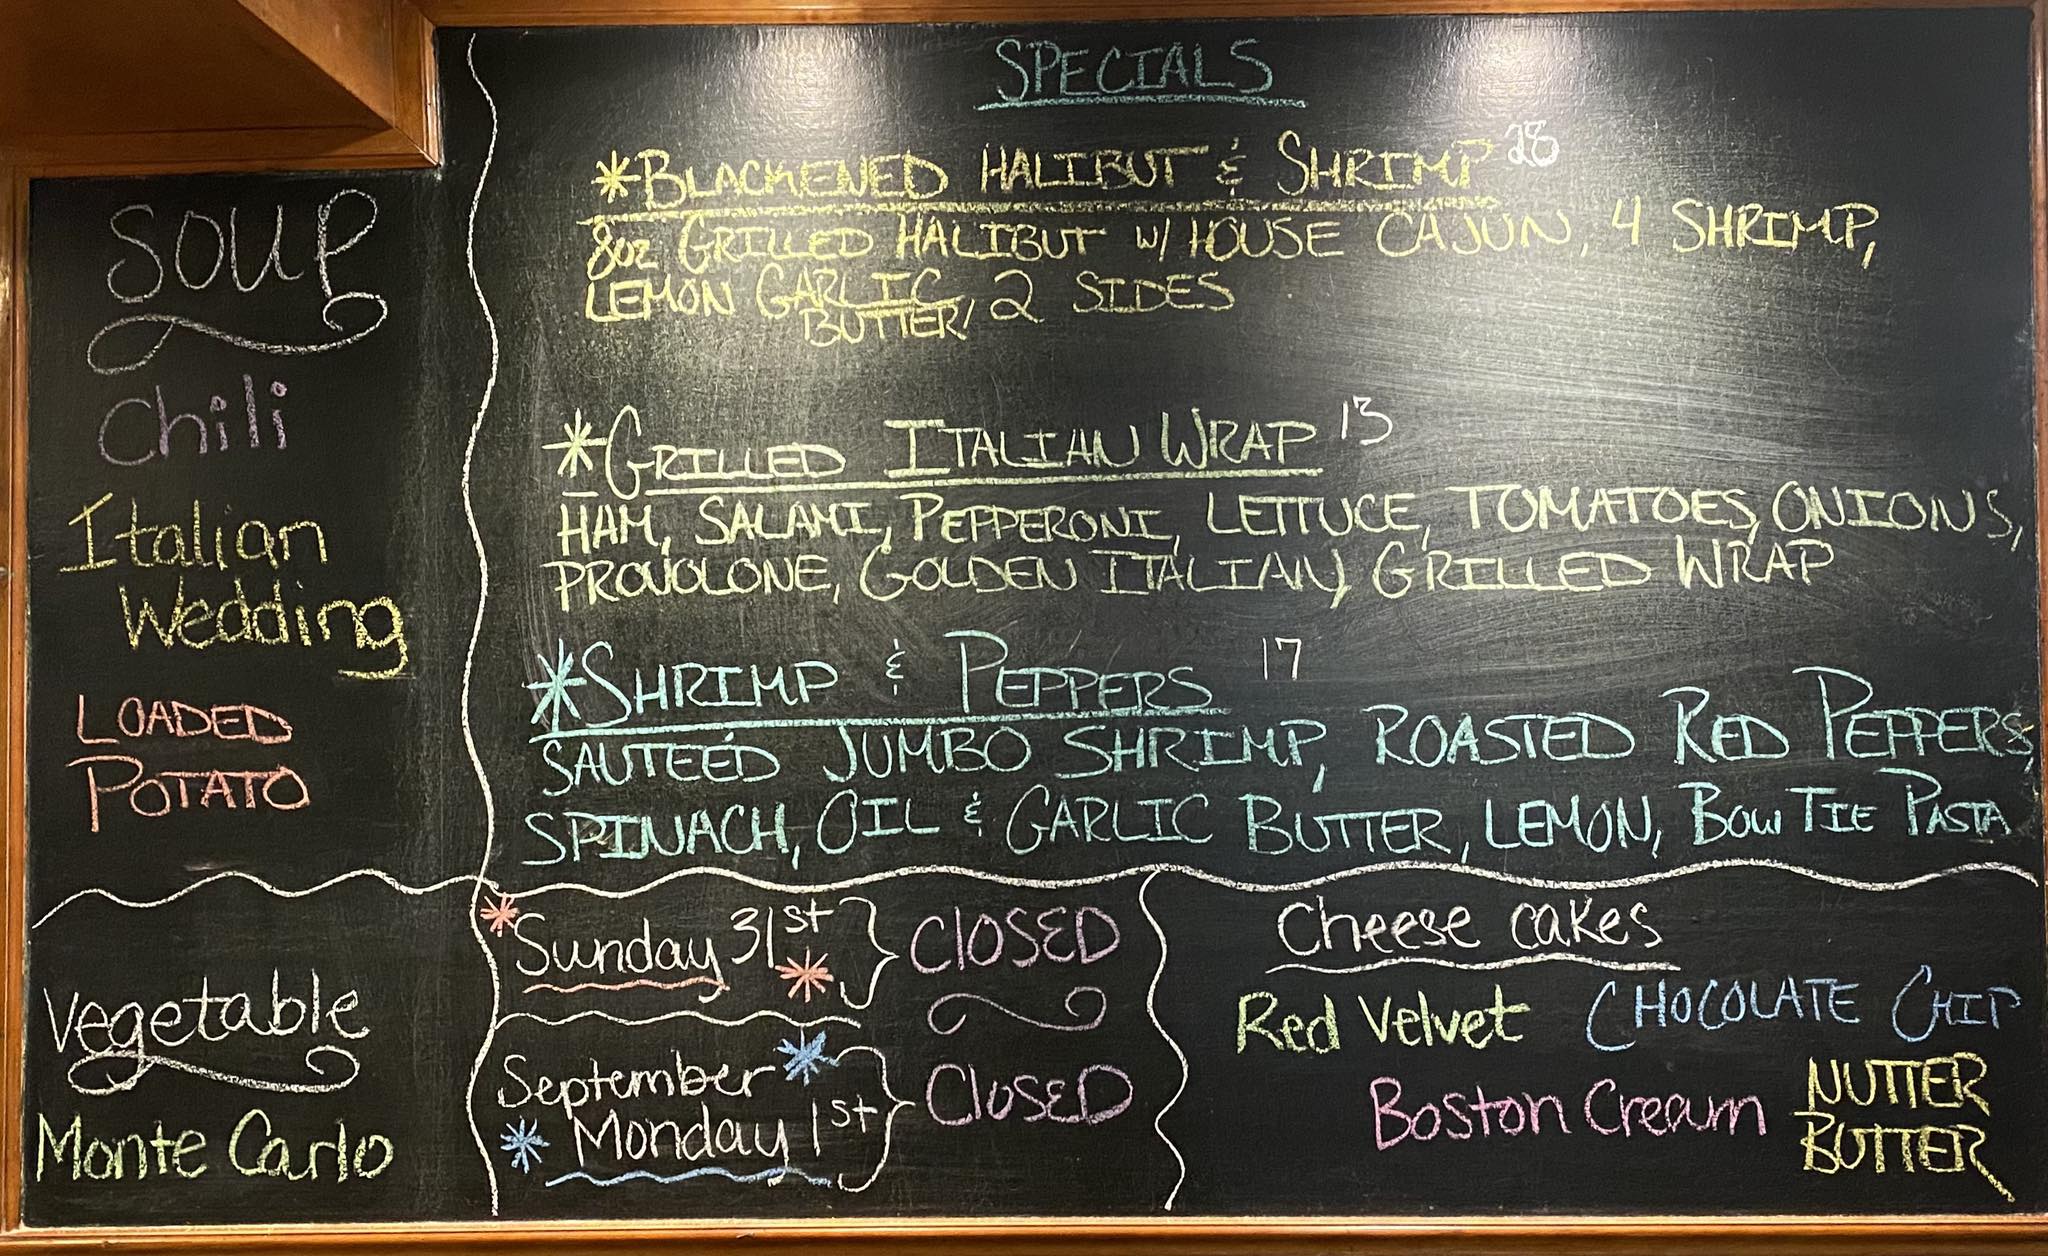 SOUP
Chili
Italian
Wedding
LOADED
POTATO
Vegetable
Monte Carlo
SPECIALS
*BLACKENED HALIBUT & SHRIMP 28
8oz GRILLED HALIBUT W/ HOUSE CAJUN, 4 SHRIMP,
LEMON GARLIC BUTTER, 2 SIDES
*GRILLED ITALIAN WRAP 13
HAM, SALAMI, PEPPERONI, LETTUCE, TOMATOES, ONIONS,
PROVOLONE, GOLDEN ITALIAN, GRILLED WRAP
*SHRIMP & PEPPERS 17
SAUTEÉD JUMBO SHRIMP, ROASTED RED PEPPERS,
SPINACH, OIL & GARLIC BUTTER, LEMON, BOW TIE PASTA
*Sunday 31st* } CLOSED
September *
* Monday 1st } CLOSED
Cheese cakes
Red Velvet CHOCOLATE CHIP
Boston Cream NUTTER
BUTTER